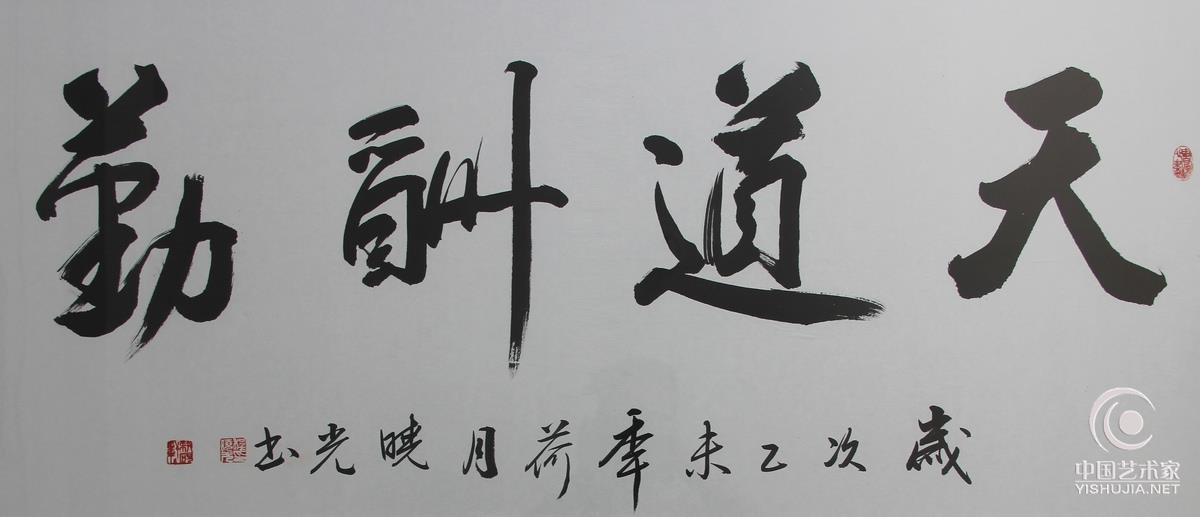 天道酬勤
歲次乙未年荷月曉光书
中国艺术家
YISHUJIA.NET